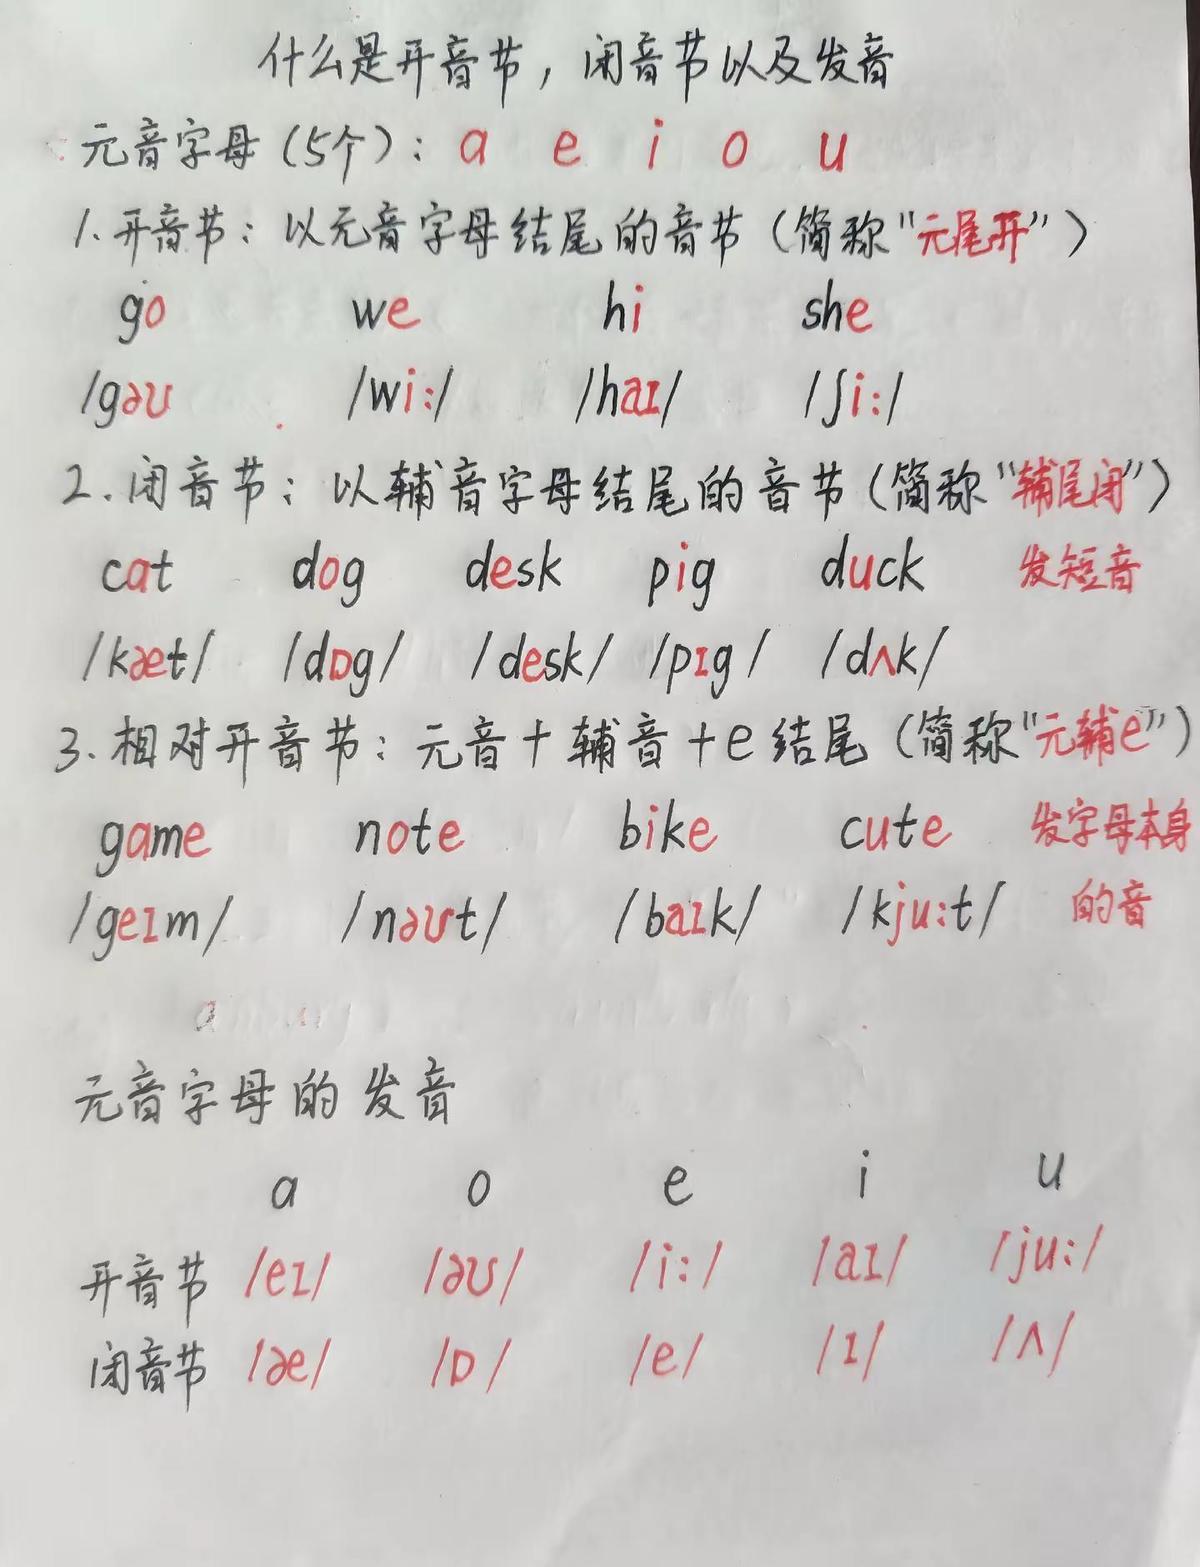 什么是开音节，闭音节以及发音
元音字母（5个）：a e i o u
1.开音节：以元音字母结尾的音节（简称“元尾开”）
go we hi she
/gəʊ /wi:/ /haɪ/ /ʃi:/
2.闭音节：以辅音字母结尾的音节（简称“辅尾闭”）
cat dog desk pig duck 发短音
/kæt/ /dɒg/ /desk/ /pɪg/ /dʌk/
3.相对开音节：元音＋辅音＋e结尾（简称“元辅e”）
game note bike cute 发字母本身
/geɪm/ /nəʊt/ /baɪk/ /kju:t/ 的音
元音字母的发音
a o e i u
开音节 /eɪ/ /əʊ/ /i:/ /aɪ/ /ju:/
闭音节 /æ/ /ɒ/ /e/ /ɪ/ /ʌ/